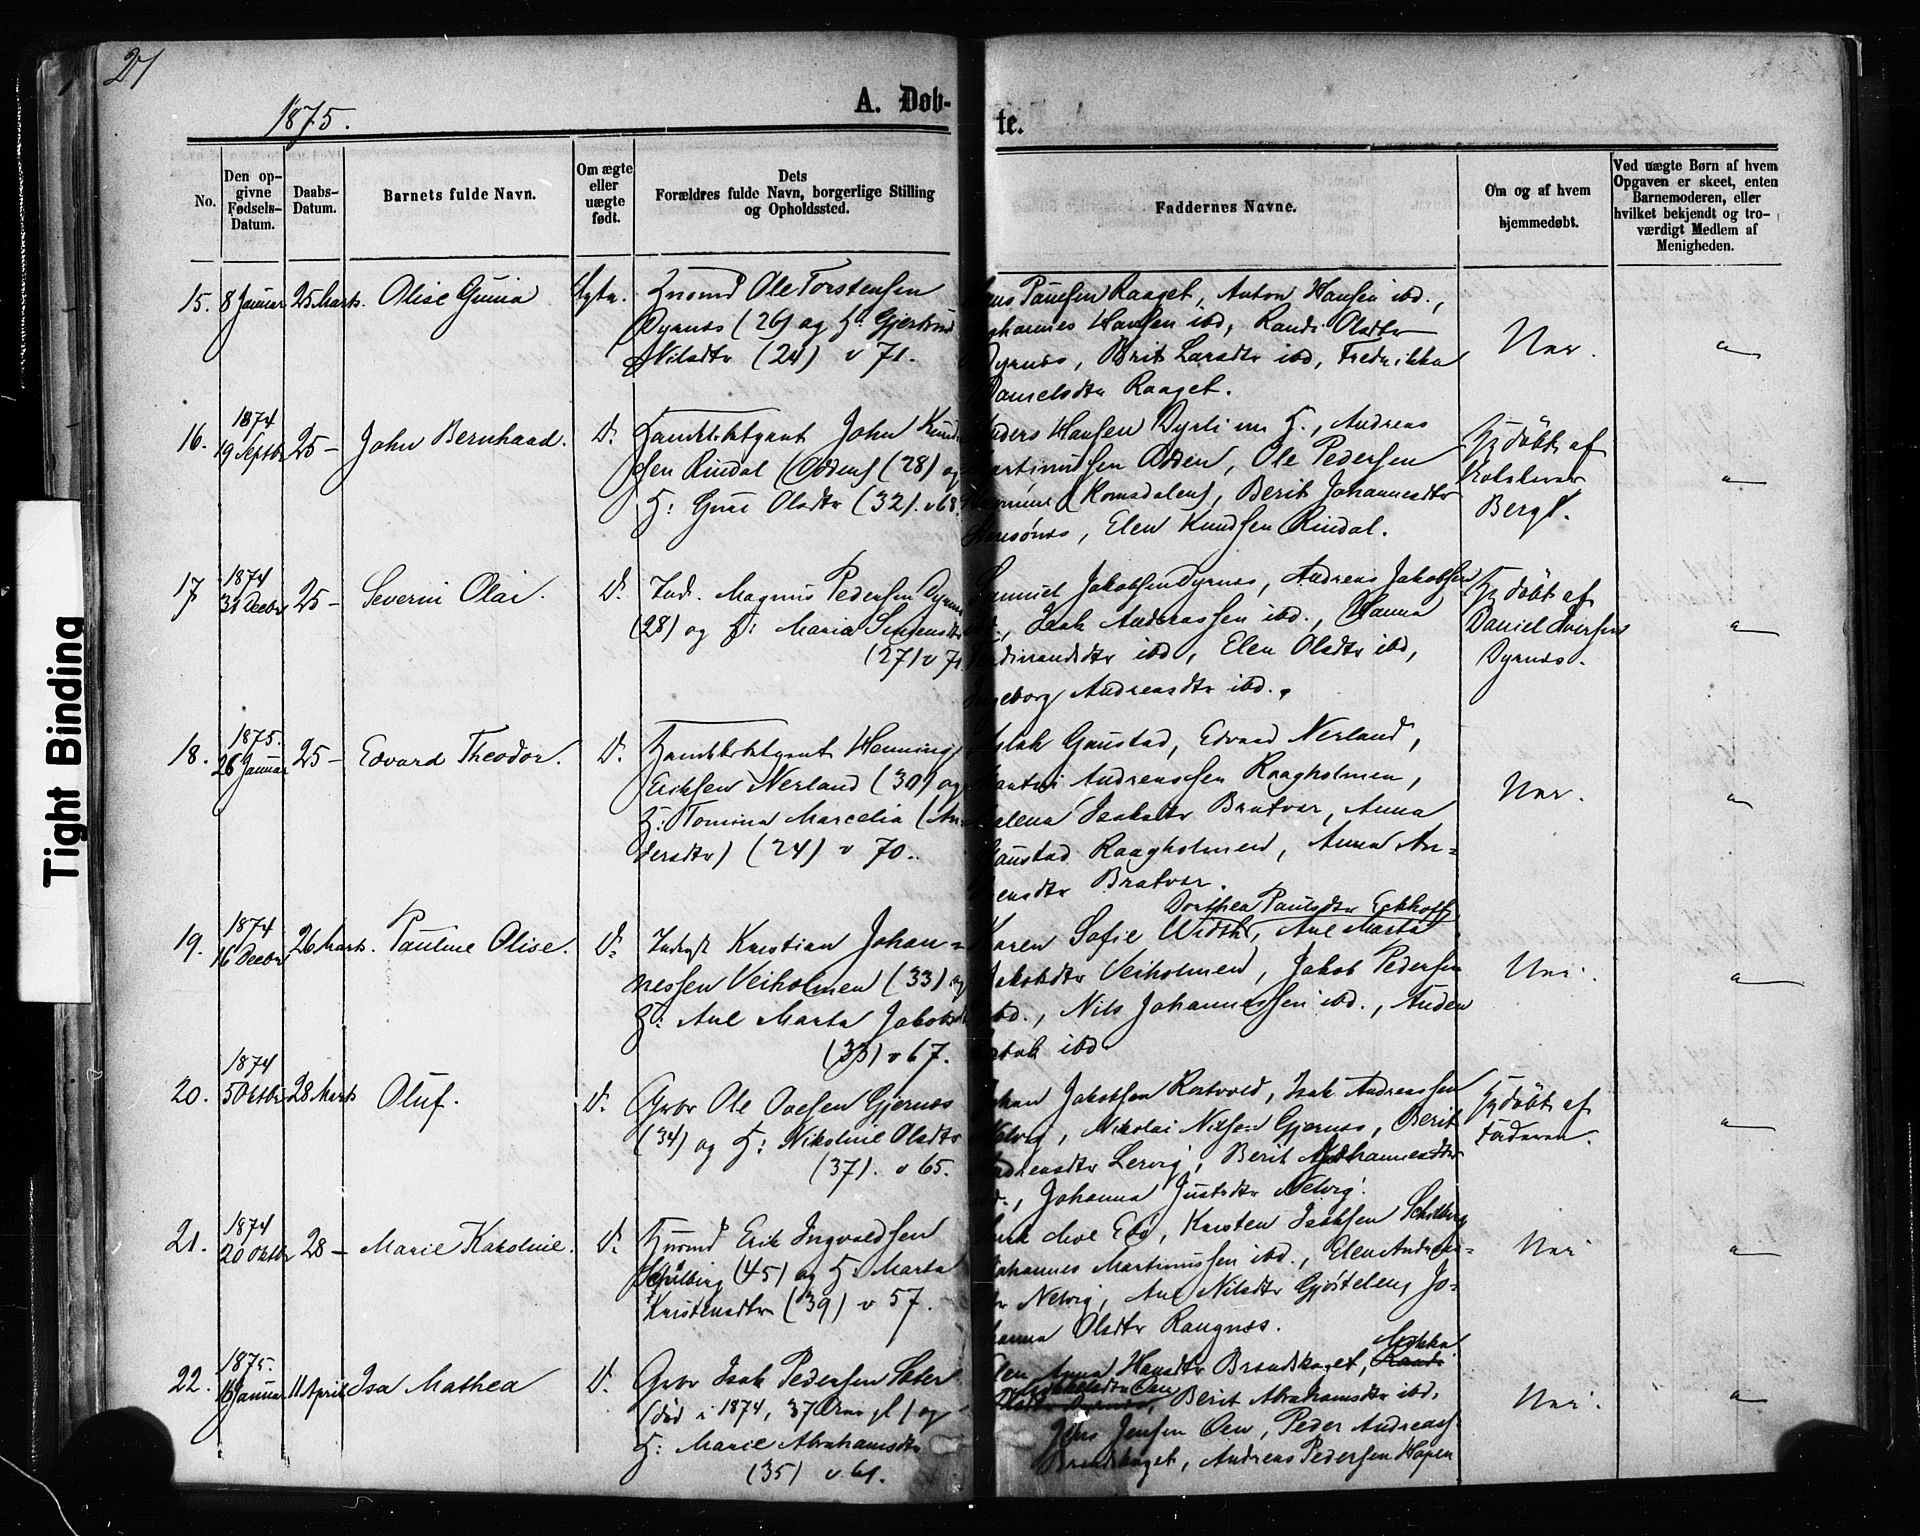 21
1875.
A. Døb-
te.
No.
Den op-
givne
Fødsels-
Datum.
Daabs-
Datum.
Barnets fulde Navn.
Om ægte
eller
uægte
født.
Dets
Forældres fulde Navn, borgerlige Stilling
og Opholdssted.
Faddernes Navne.
Om og af hvem
hjemmedøbt.
Ved uægte Børn af hvem
Opgaven er skeet, enten
Barnemoderen, eller
hvilket bekjendt og tro-
værdigt Medlem af
Menigheden.
15. 8 Januar 25 Marts. Olise Gunia Ægte.
Ole Torstensen
Dyrnes (26) og H: Gjertrud
Nilsdtr (24) v 71.
Paulsen Raaget, Anton Hansen ibd.,
Johannes Hansen ibd, Randi Olsdtr
Dyrnes, Berit Larsdtr ibd, Fredrikka
Danielsdtr Raaget.
16. 1874
19 Septbr 25 - John Bernhard. D.
John Knud-
sen Rindal (Odden) (28) og
H: Guri Olsdtr (32). v 68.
Anders Hansen Dyrli H., Andreas
Martinussen Odden, Ole Pedersen
(Romsdalen), Berit Johannesdtr
Elen Knudsen Rindal.
Hjdøbt af
Bergt.
17 1874
31 Decbr 25 - Severin Olai. D.
Ind. Magnus Pedersen Dyrnes
(28) og H: Maria Simensdtr
(27) v 71
Samuel Jakobsen Dyrnes, Andreas Jakobsen
Isak Andreassen ibd., Hanna
Ferdinandsdtr ibd, Elen Olsdtr ibd,
Ingeborg Andreasdtr ibd.
Hjdøbt af
Daniel Iversen
Dyrnes.
18. 1875.
26 Januar 25 - Edvard Theodor. D.
Henning
Eriksen Nerland (30) og
H: Tomina Marcelia (An-
dersdtr) (24) v 70.
Aslak Gaustad, Edvard Nerland,
Andreassen Raagholmen,
Malena Isaksdtr Bratvær, Anna
Gaustad Raagholmen, Anna An-
dreasdtr Bratvær.
Nei.
19. 1874
16 Decbr 26 Marts. Pauline Olise. D.
Kristian Johan-
nessen Veiholmen (33) og
H: Ane Marta Jakobsdtr
(33) v 67.
Dorthea Paulsdtr Eckhoff
Karen Sofie Width, Ane Marta
Jakobsdtr Veiholmen, Jakob Pedersen
ibd., Nils Johannessen ibd., Anden
ibd.
Nei.
20. 1874
5 Oktbr 28 Marts Oluf. D.
Gbr Ole Ovesen Gjernes
(34) og H: Nikoline Olsdtr
(37). v 65.
Johan Jakobsen Rostvold, Isak Andreassen
Nelvig, Nikolai Nilsen Gjernes, Berit
Andreasdtr Lervig, Berit Johannesdtr
ibd., Johanna Justsdtr Nelvig.
Hjdøbt af
Faderen.
21. 1874
20 Oktbr 28 - Marie Karoline. D.
Husmd Erik Ingvaldsen
Schilberg (45) og H: Marta
Kristensdtr (39) v 57.
Moe Edø, Kristen Isaksen Schilberg
Johannes Martinussen ibd., Elen Andreas-
dtr Nelvig, Ane Nilsdtr Gjøstelen, Jo-
hanna Olsdtr Raugnes.
Nei
22. 1875.
16 Januar 11 April Isa Mathea D.
Gbr Isak Pedersen Sæter
(død i 1874, 37 Aar gl) og
H: Marie Abrahamsdtr
(35) v. 61.
Elen Anna Hansdtr Brandskaget,
Berit Abrahamsdtr ibd.
Jens Jensen Oen, Peder Andreass.
Brandskaget, Andreas Pedersen Hopen
Nei.
Tight Binding